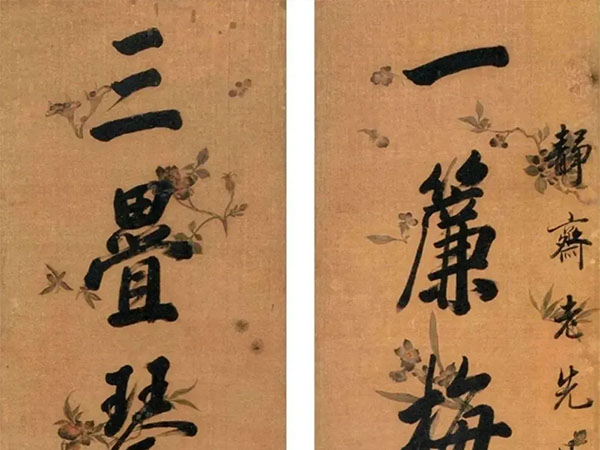 靜齋老先
一簾梅
三疊琴